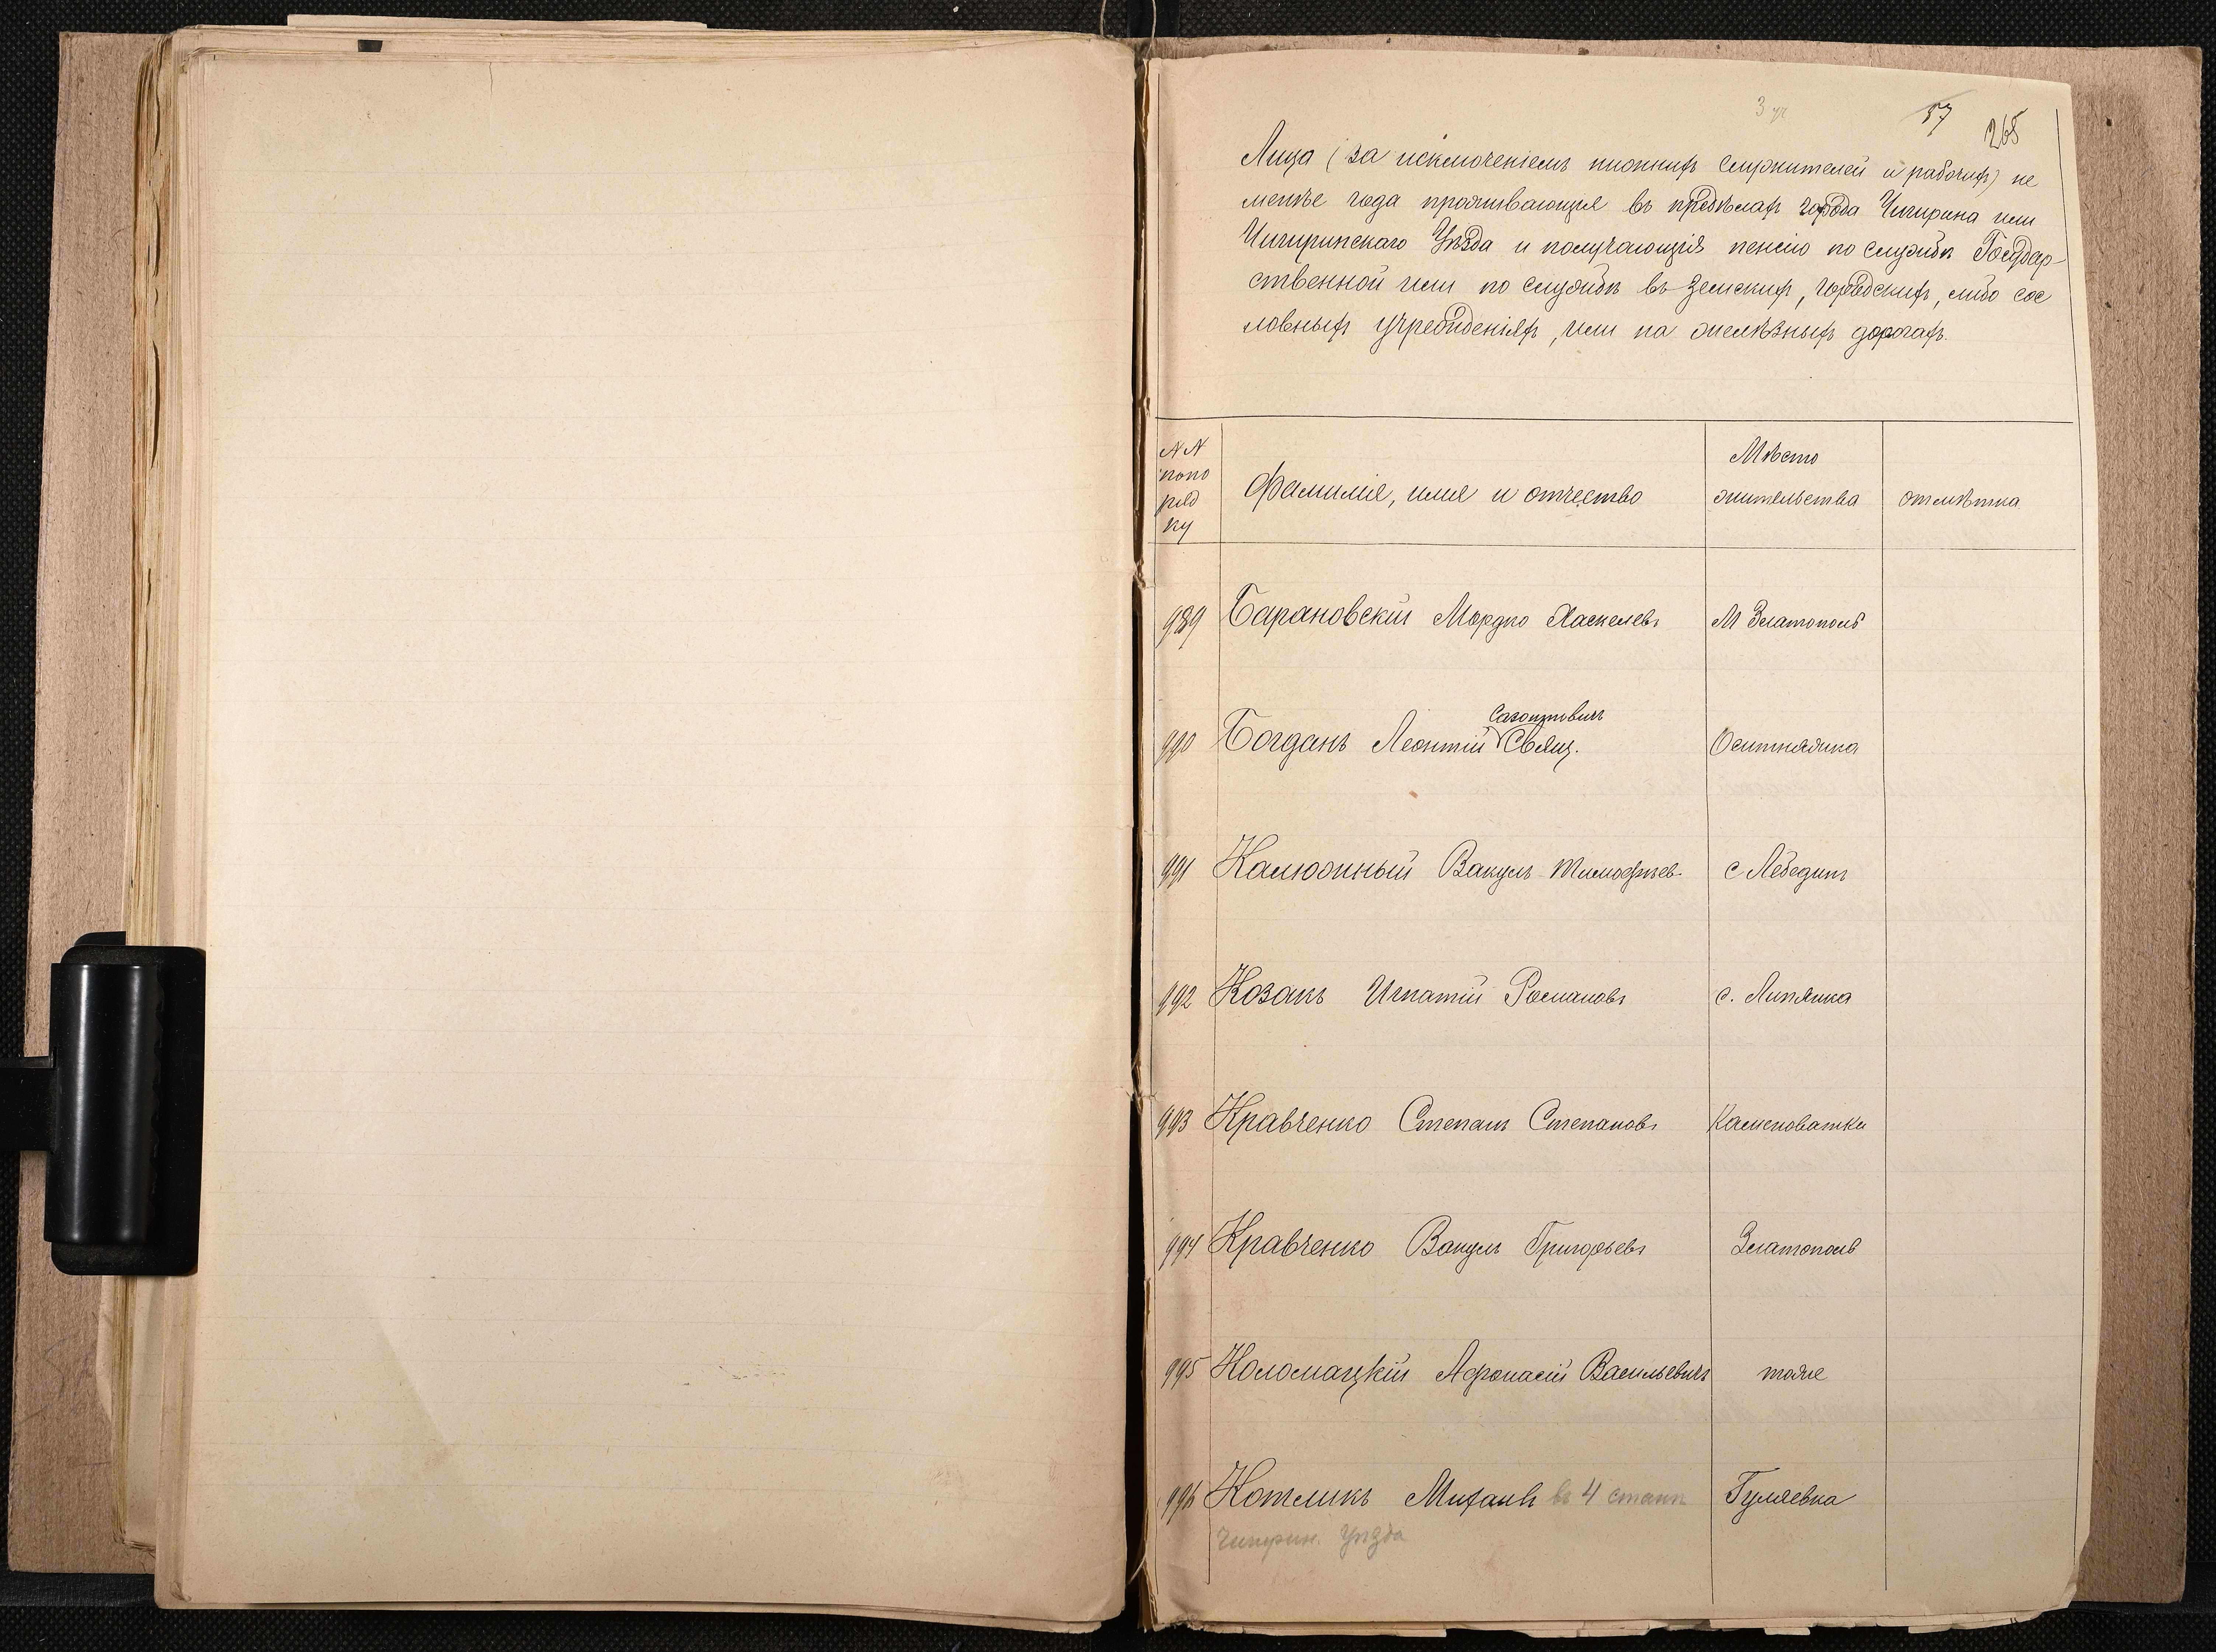 3 уч
57
265
Лица (за исключеніемъ нижнихъ служителей и рабочихъ) не
менѣе года проживающія въ предѣлахъ города Чигирина или
Чигиринскаго Уѣзда и получающія пенсію по службѣ Государ-
ственной или по службѣ въ земскихъ, городскихъ, либо сос
ловныхъ учрежденіяхъ, или на желѣзныхъ дорогахъ.
NN
попо
ряд
ку
Фамилія, имя и отчество
Мѣсто
жительства
отмѣтка
989 Барановскій Мордко Хаскелевъ М Златополь
Сазонтовичъ
990 Богданъ Леонтій Свящ. Оситняжка
991 Калюжный Вакулъ Тимофѣев. с Лебединъ
992 Козакъ Игнатій Романовъ с. Липянка
993 Кравченко Степанъ Степановъ Каменоватка
994 Кравченко Вакулъ Григорьевъ Златополь
995 Коломацкій Афанасій Васильевичъ тоже
996 Котликъ Михаилъ въ 4 станѣ Гуляевка
Чигирин. Уѣзда